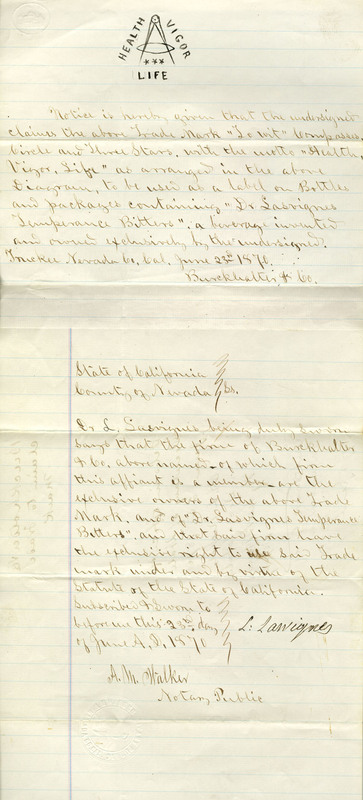 HEALTH VIGOR
LIFE
Notice is hereby given that the undersigned
claims the above Trade Mark "To wit" Compasses
Circle and Three Stars. with the motto "Health
Vigor, Life" as arranged in the above
Diagram, to be used as a label on Bottles
and packages containing "Dr Lasvignes
Temperance Bitters". a beverage invented
and owned exclusively by the undersigned.
Truckee Nevada Co. Cal. June 22nd 1870.
Burckhalter & Co.
State of California
County of Nevada } ss.
Dr L. Lasvignes being duly sworn
says that the firm of Burckhalter
& Co. above named of which firm
this affiant is a member are the
exclusive owners of the above Trade
Mark. and of "Dr. Lasvignes Temperance
Bitters". and that said firm have
the exclusive right to use said Trade
mark under and by virtue of the
Statute of the State of California.
Subscribed & Sworn to
before me this day L. Lasvignes
of June A.D. 1870
A. M. Walker
Notary Public